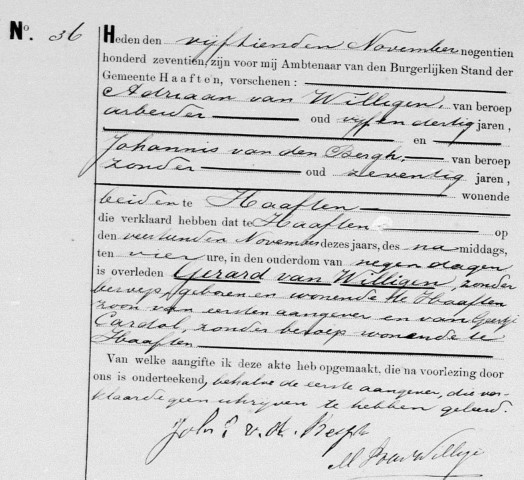 No. 36 Heden den vijftienden November negentien
honderd zeventien, zijn voor mij Ambtenaar van den Burgerlijken Stand der
Gemeente Haaften, verschenen:
Adriaan van Willigen, van beroep
arbeider oud vijf en dertig jaren,
en
Johannis van den Bergh, van beroep
zonder oud zeventig jaren,
wonende
beiden te Haaften
die verklaard hebben dat te Haaften op
den veertienden November dezes jaars, des na middags,
ten vier ure, in den ouderdom van negen dagen
is overleden Gerard van Willigen, zonder
beroep, geboren en wonende te Haaften
zoon van eersten aangever en van Geertje
Cardol, zonder beroep wonende te
Haaften
Van welke aangifte ik deze akte heb opgemaakt, die na voorlezing door
ons is onderteekend, behalve de eerste aangever, die ver-
klaarde geen schrijven te hebben geleerd.
Joh v. d. Bergh